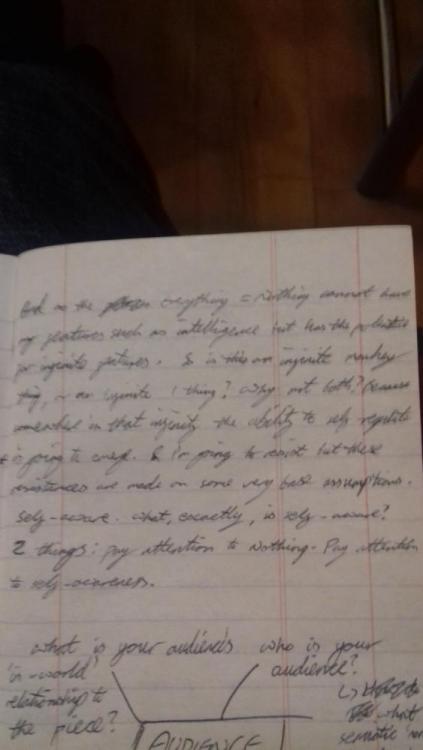 God as the Everything = Nothing cannot have
any features such as intelligence but has the potential
for infinite features. So is this an infinite monkey
thing, or an infinite 1 thing? Why not both? Because
somewhere in that infinity the ability to self replicate
is going to emerge. & I'm going to resist but these
resistances are made on some very base assumptions.
self-aware. What, exactly, is self-aware?
2 things: pay attention to Nothing. Pay attention
to self-awareness.
what is your audience's who is your
'in-world' audience?
relationship to
the piece? what
AUDIENCE semantic